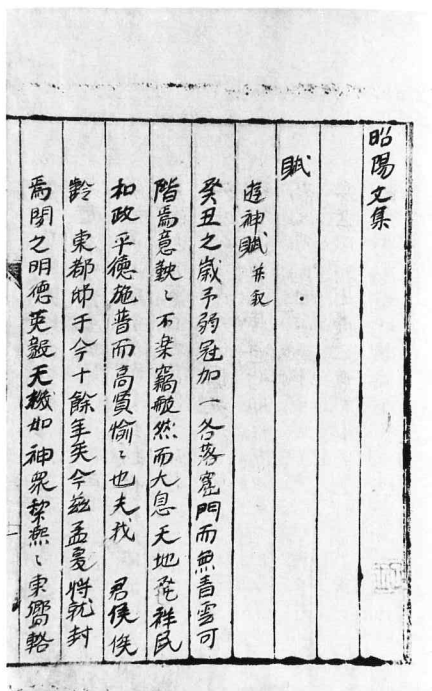 昭陽文集
賦
遊神賦 并叙
癸丑之歳予弱冠加一各落寒門而無青雲可
階焉意鞅〻不楽竊皷然而大息天地発祥民
和政平徳施普而高賢愉〻也夫我 君侯俟
齢 東都邸于今十餘年矣今茲孟夏将就封
焉閲之明徳英毅天機如神衆黎熙〻東嚮輅